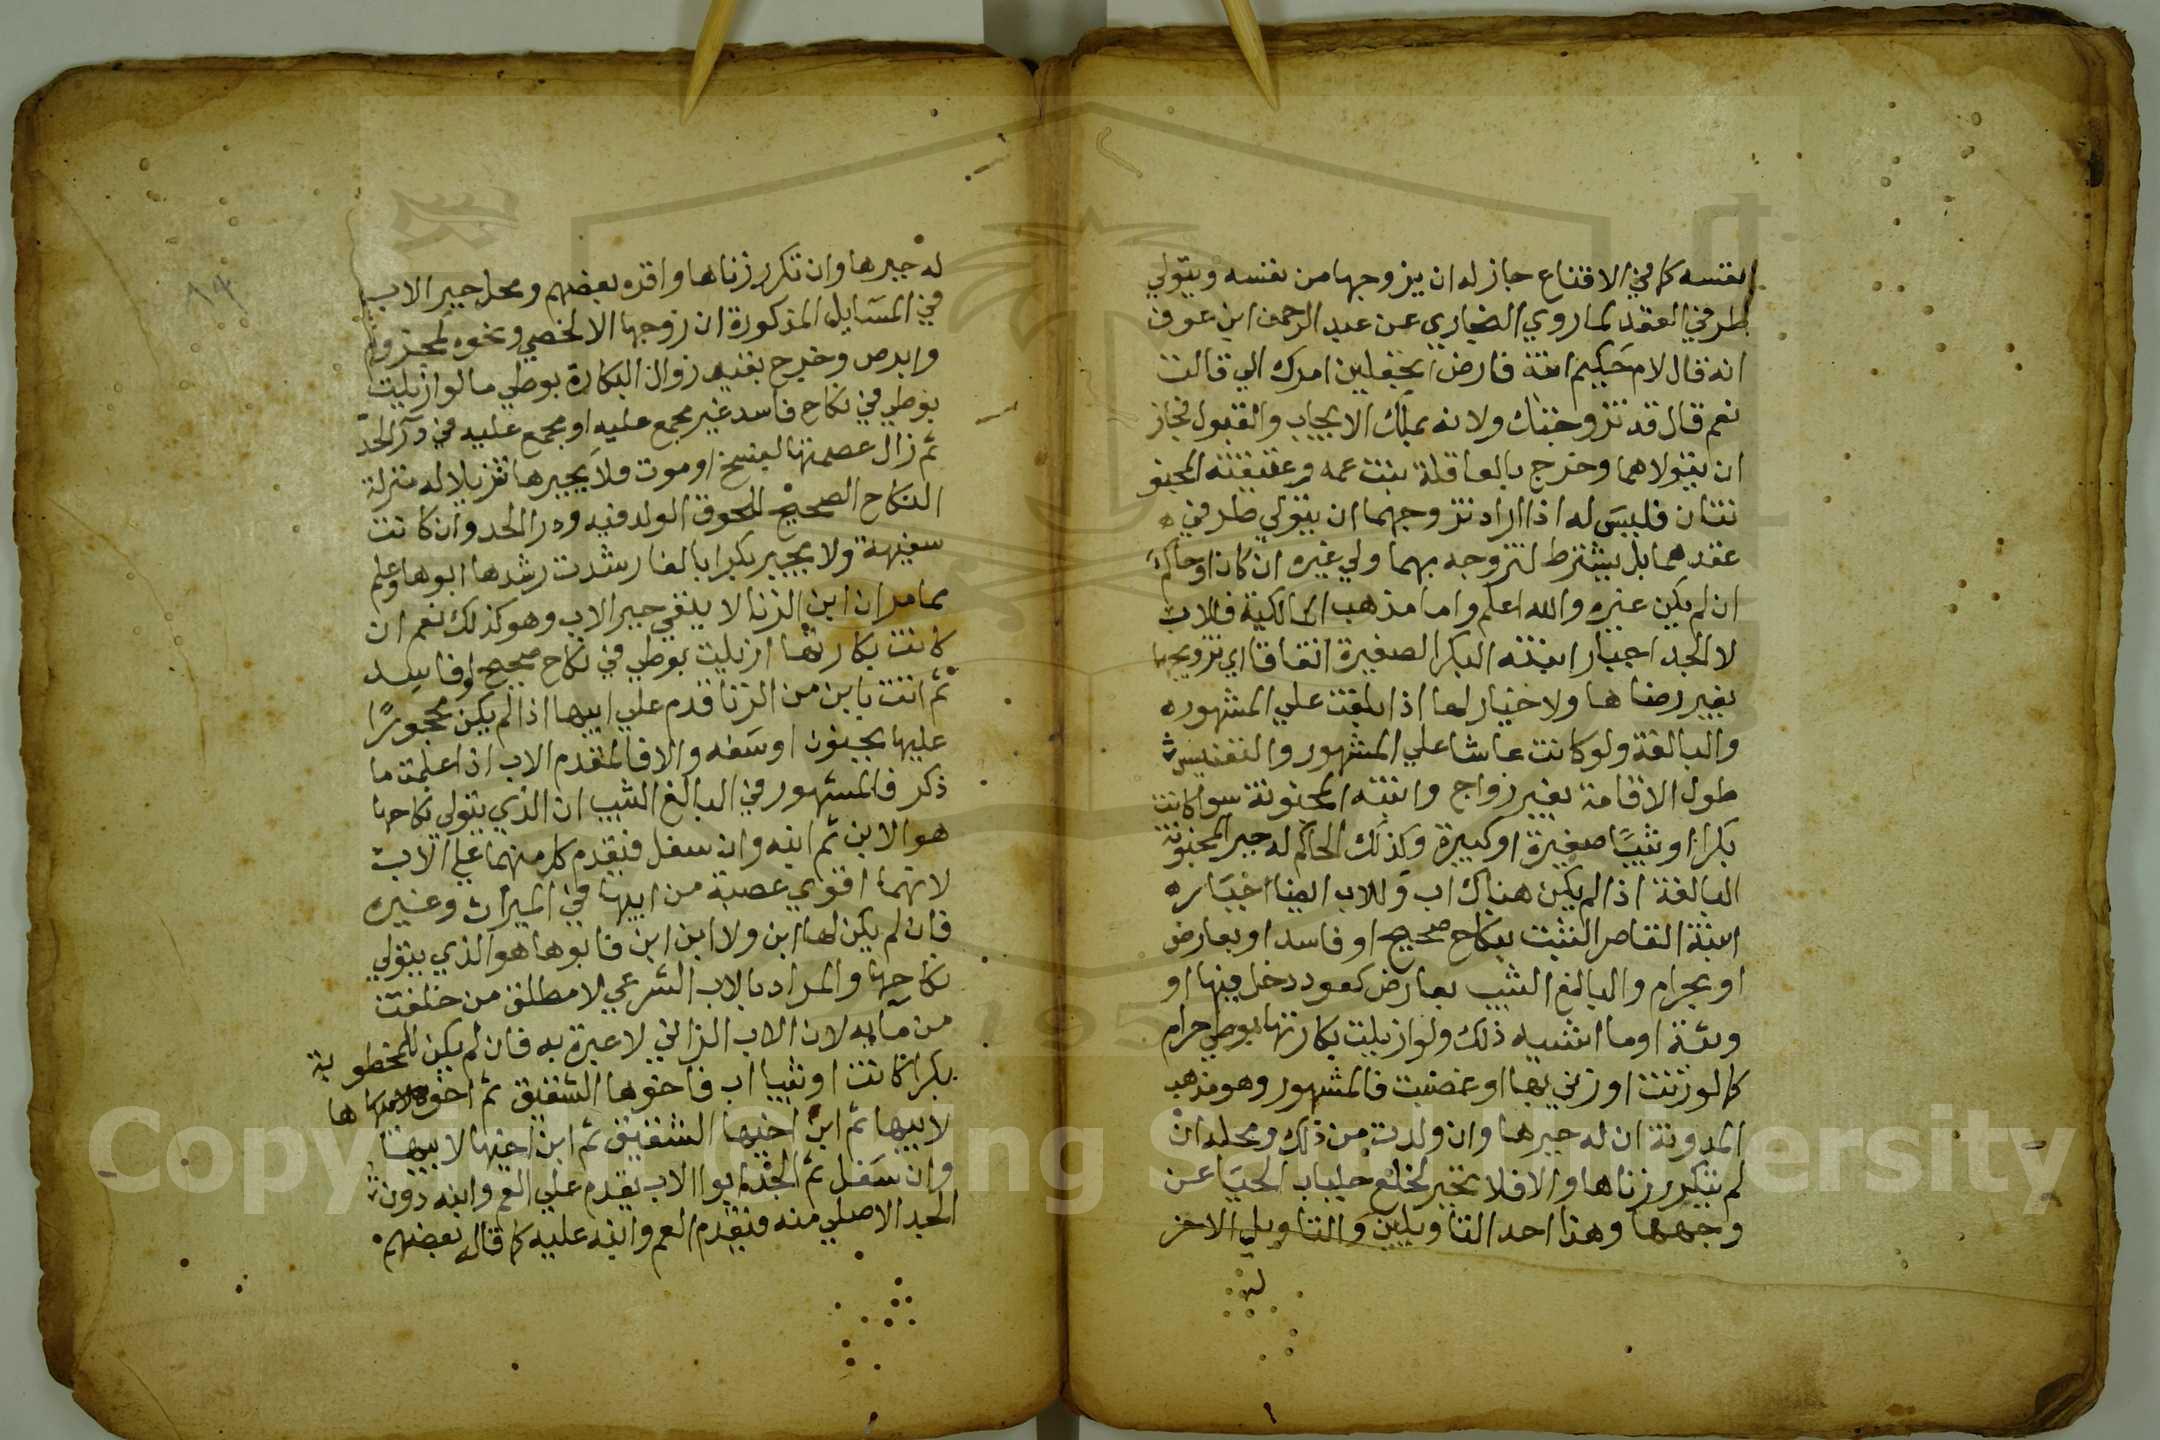 لنفسه كما في الاقناع جاز له ان يزوجها من نفسه ويتولي
طرفي العقد لما روي البخاري عن عبد الرحمن ابن عوف
انه قال لام حكيم ابنة قارض اتجعلين امرك الي قالت
نعم قال قد تزوجتك ولانه يملك الايجاب والقبول فجاز
ان يتولاهما وخرج بالعاقلة بنت عمه وعتيقته المجنو
نتان فليس له اذا اراد تزوجهما ان يتولي طرفي
عقدهما بل يشترط لتزوجه بهما ولي غيره ان كان او حاكم
ان لم يكن غيره والله اعلم واما مذهب المالكية فللاب
لا الجد اجبار ابنته البكر الصغيرة اتفاقا اي تزويجها
بغير رضاها ولا خيار لها اذا بلغت علي المشهور
والبالغة ولو كانت عانسا علي المشهور والتعنيس
طول الاقامة بغير زواج وابنته المجنونة سوا كانت
بكرا او ثيبا صغيرة او كبيرة وكذلك الحاكم له جبر المجنونة
البالغة اذا لم يكن هناك اب وللاب ايضا اجباره
ابنته القاصر الثيب بنكاح صحيح او فاسد او بعارض
او بحرام والبالغ الثيب بعارض كعود دخل فيها او
وثبة او ما اشبه ذلك ولو ازيلت بكارتها بوطي حرام
كما لو زنت او زني بها او غصبت فالمشهور وهو مذهب
المدونة ان له جبرها وان ولدت من ذلك ومحله ان
لم يتكرر زناها والا فلا تجبر لخلع جلباب الحيا عن
وجهها وهذا احد التاويلين والتاويل الاخر
له جبرها وان تكرر زناها واقره بعضهم ومحل جبر الاب
في المسايل المذكورة ان زوجها الا لخصي ونحوه لمجزوم
وابرص وخرج بقيد زوال البكارة بوطي ما لو ازيلت
بوطي في نكاح فاسد غير مجمع عليه او مجمع عليه في درا الحد
ثم زال عصمتها لفسخ او موت فلا يجبرها تنزيلا له منزلة
النكاح الصحيح للحوق الولد فيه ودرا الحد وان كانت
سفيهة ولا يجبر بكرا بالغا رشدت رشدها ابوها وعلم
مما مر ان ابن الزنا لا ينفي جبر الاب وهو كذلك نعم ان
كانت بكارتها ازيلت بوطي في نكاح صحيح او فاسد
ثم اتت بابن من الزنا قدم علي ابيها اذا لم يكن محجورا
عليها بجنون او سفه والا فالمقدم الاب اذا علمت ما
ذكر فالمشهور في البالغ الثيب ان الذي يتولي نكاحها
هو الابن ثم ابنه وان سفل فيقدم كل منهما علي الاب
لانهما اقوي عصبة من ابيها في الميراث وغيره
فان لم يكن لها ابن ولا ابن ابن فابوها هو الذي يتولي
نكاحها والمراد بالاب الشرعي لا مطلق من خلقت
من مايه لان الاب الزاني لا عبرة به فان لم يكن للمخطوبة
بكرا كانت او ثيبا اب فاخوها الشقيق ثم اخوها
لابيها ثم ابن اخيها الشقيق ثم ابن اخيها لابيها
وان سفل ثم الجد ابو الاب يقدم علي العم وابنه دون
الجد الاصلي منه فيقدم العم وابنه عليه كما قال بعضهم